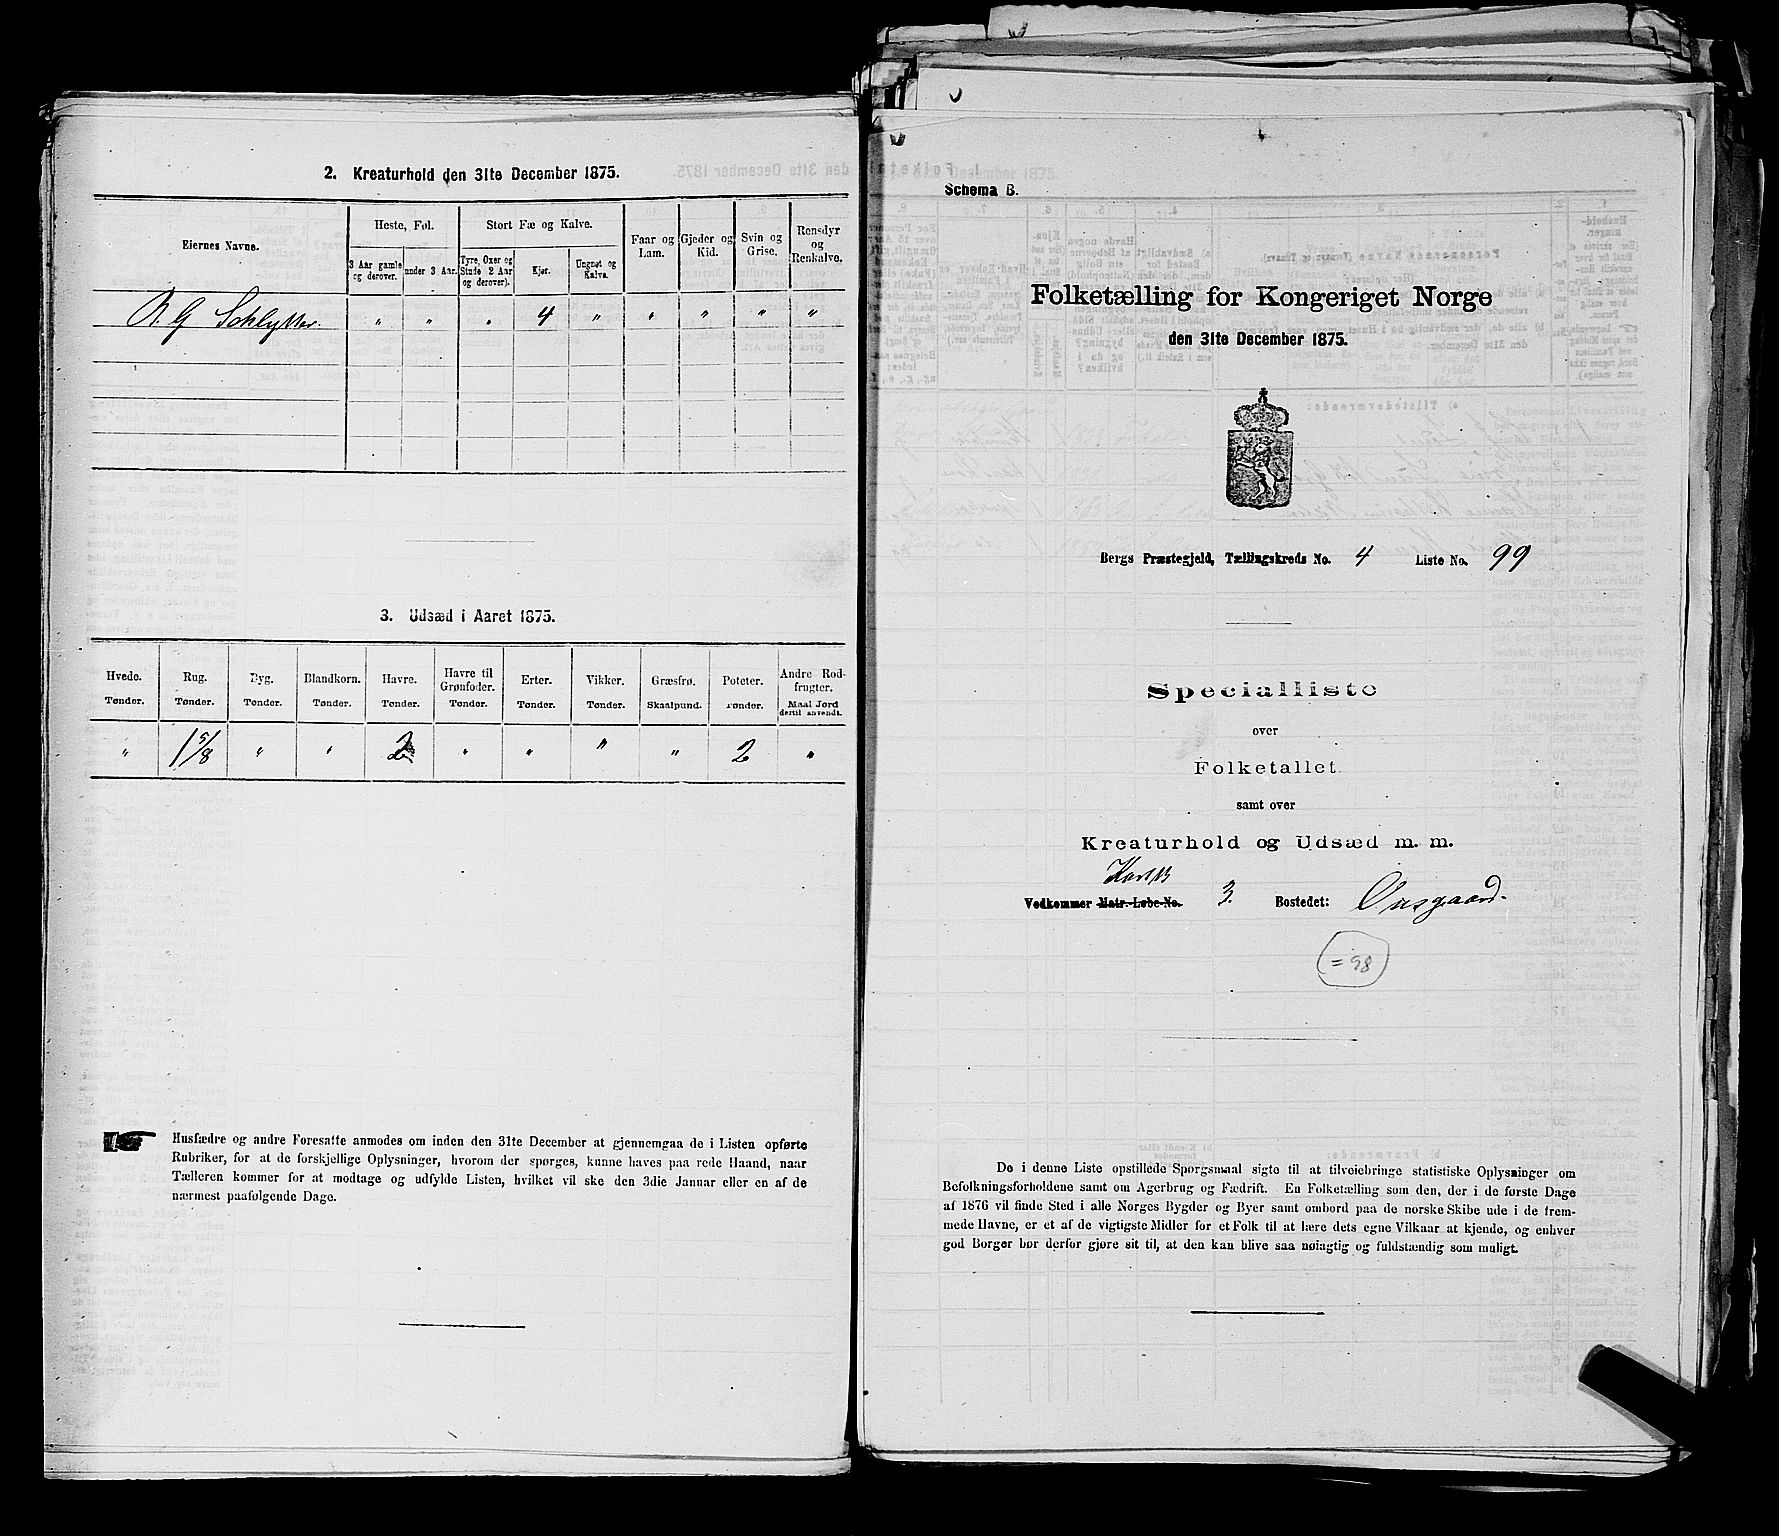 2. Kreaturhold den 31te December 1875.
Eiernes Navne.
Heste, Føl.
3 Aar gamle og derover.
under 3 Aar.
Stort Fæ og Kalve.
Tyre, Oxer og Stude 2 Aar og derover).
Kjør.
Ungnøt og Kalve.
Faar og Lam.
Gjeder og Kid.
Svin og Grise.
Rensdyr og Renkalve.
N. G Schlytter. " " " 4 " " " " "
3. Udsæd i Aaret 1875.
Hvede. Rug. Byg. Blandkorn. Havre. Havre til Grønfoder. Erter. Vikker. Græsfrø. Poteter. Andre Rodfrugter.
Tønder. Tønder. Tønder. Tønder. Tønder. Tønder. Tønder. Tønder. Skaalpund. Tønder. Maal Jord dertil anvendt.
" 1 5/8 " " 2 " " " " 2 "
Husfædre og andre Foresatte anmodes om inden den 31te December at gjennemgaa de i Listen opførte
Rubriker, for at de forskjellige Oplysninger, hvorom der spørges, kunne haves paa rede Haand, naar
Tælleren kommer for at modtage og udfylde Listen, hvilket vil ske den 3die Januar eller en af de
nærmest paafølgende Dage.
Schema B.
Folketælling for Kongeriget Norge
den 31te December 1875.
Bergs Præstegjeld, Tællingskreds No. 4 Liste No. 99
Specialliste
over
Folketallet
samt over
Kreaturhold og Udsæd m. m.
Vedkommer Matr.-Løbe-No. 3. Bostedet:
= 98
De i denne Liste opstillede Spørgsmaal sigte til at tilveiebringe statistiske Oplysninger om
Befolkningsforholdene samt om Agerbrug og Fædrift. En Folketælling som den, der i de første Dage
af 1876 vil finde Sted i alle Norges Bygder og Byer samt ombord paa de norske Skibe ude i de frem-
mede Havne, er et af de vigtigste Midler for et Folk til at lære dets egne Vilkaar at kjende, og enhver
god Borger bør derfor gjøre sit til, at den kan blive saa nøiagtig og fuldstændig som muligt.